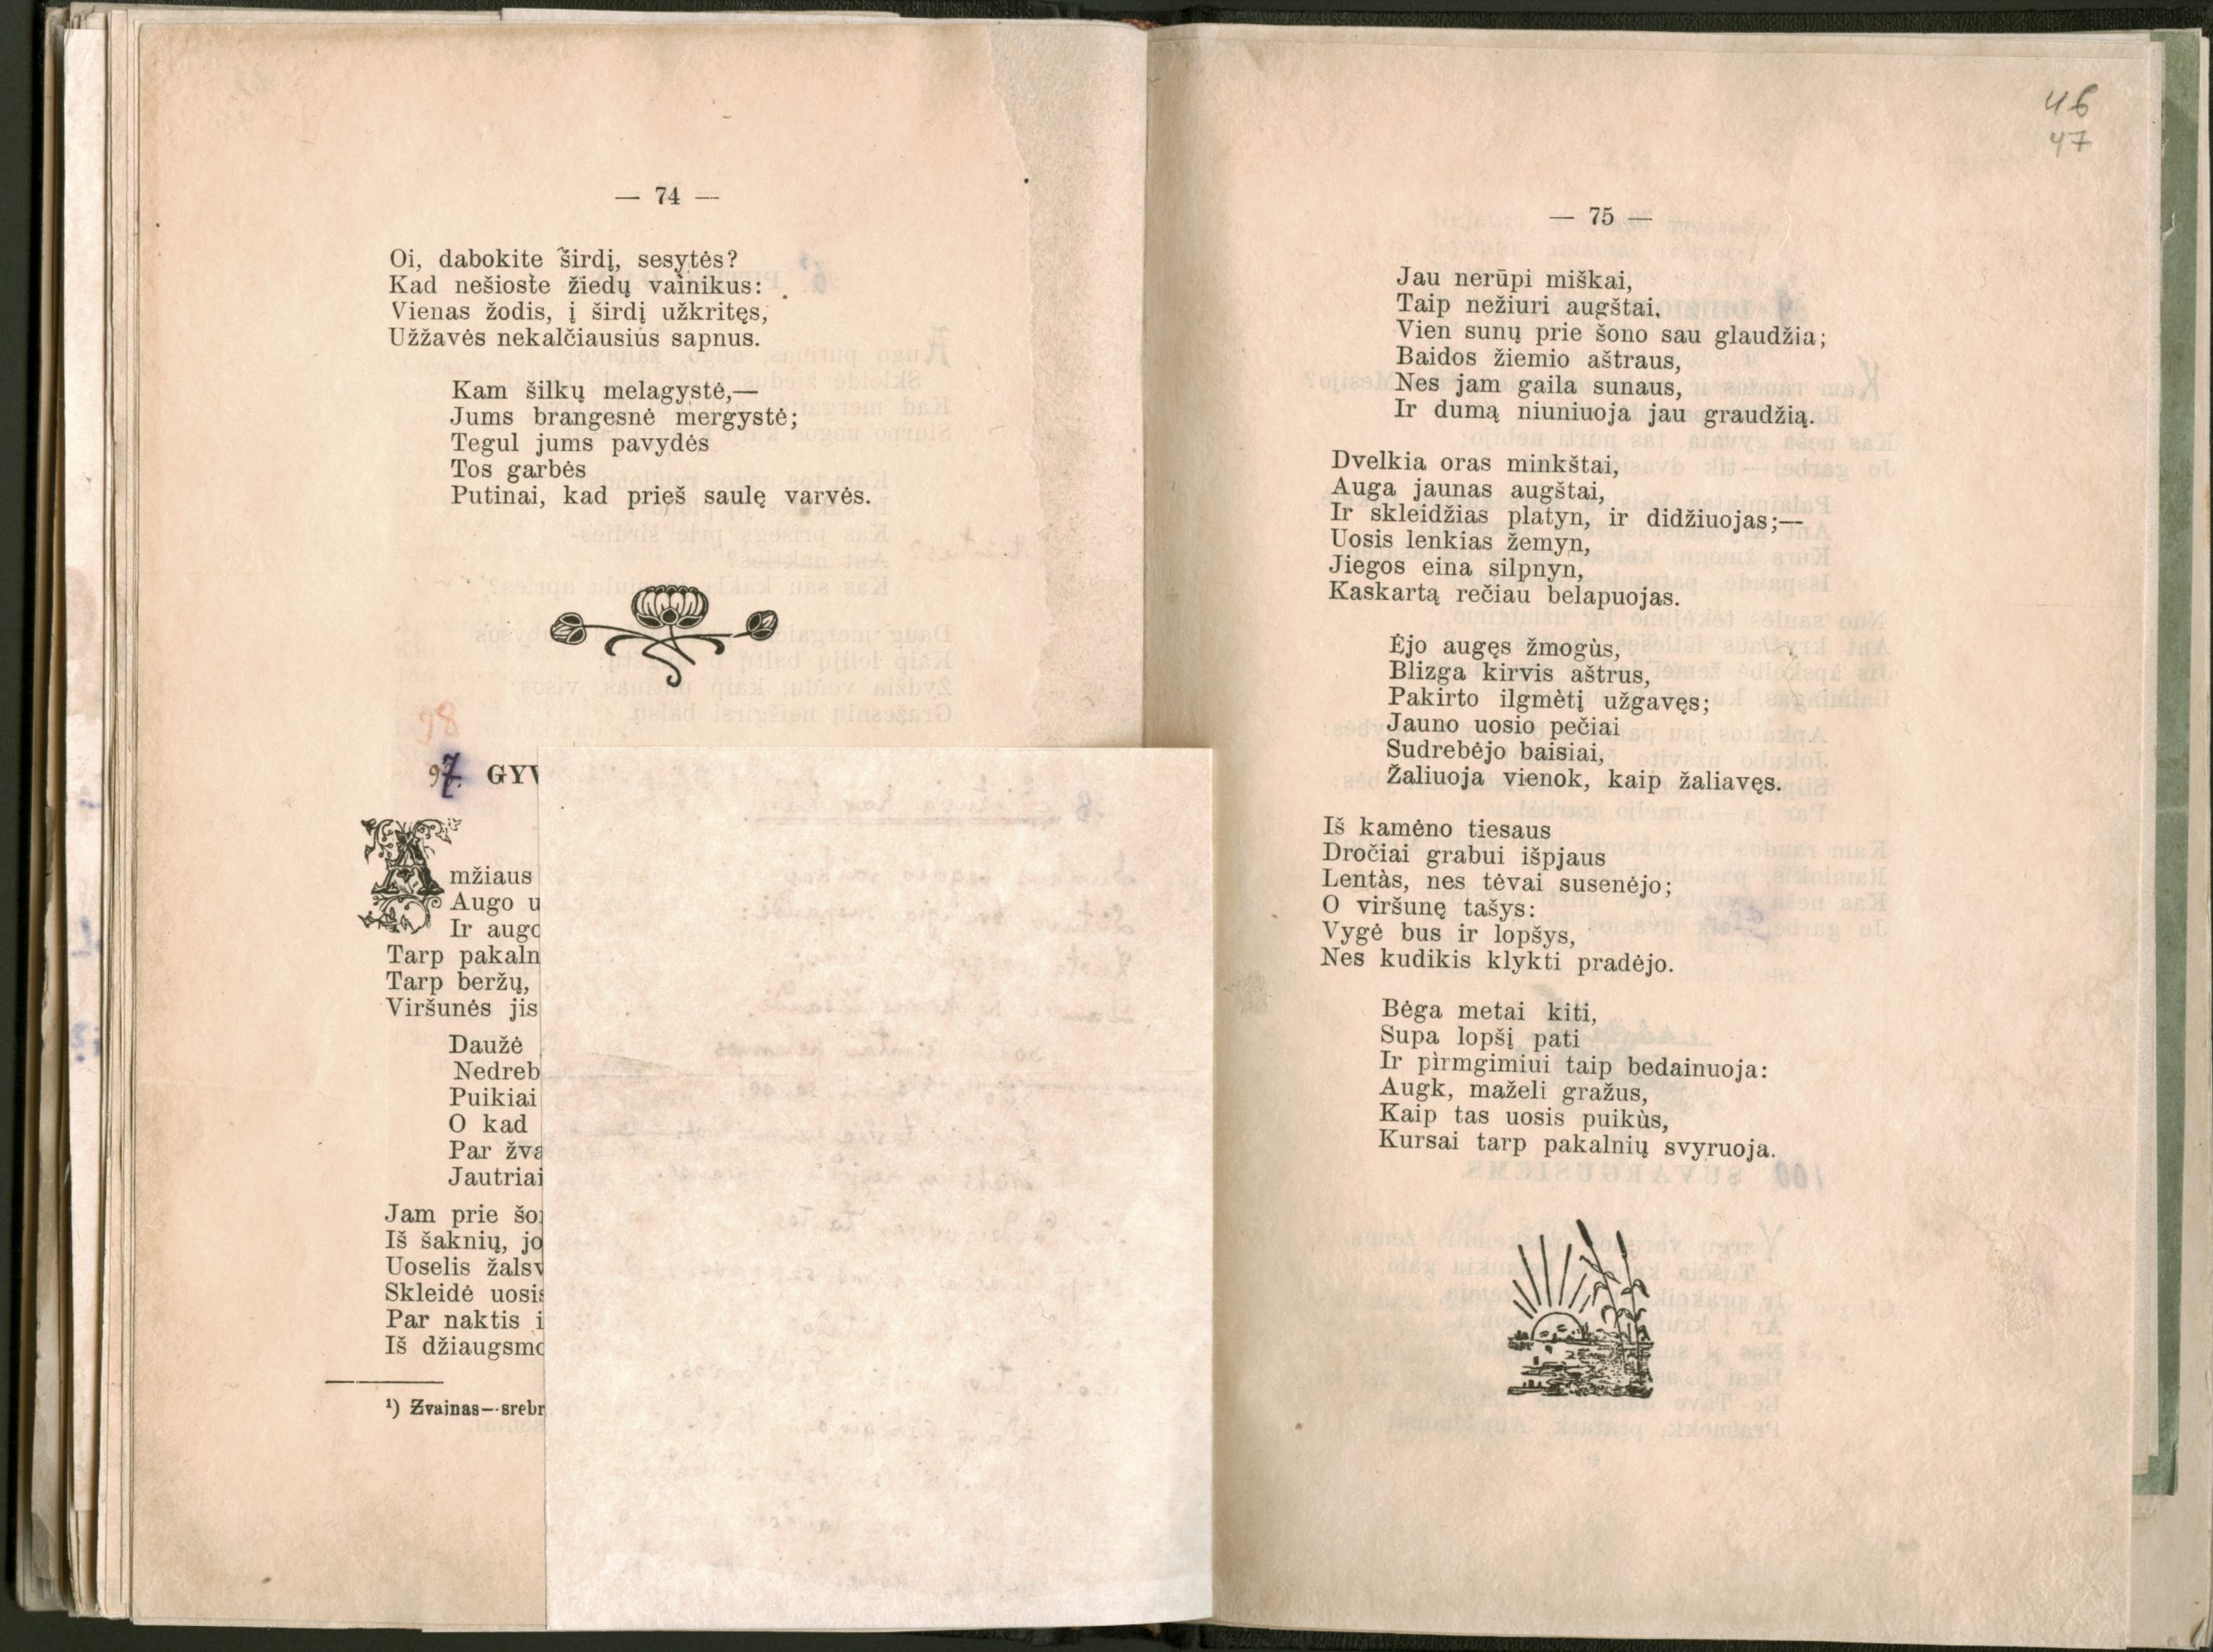 — 74 —
Oi, dabokite širdį, sesytės?
Kad nešioste žiedų vainikus:
Vienas žodis, į širdį užkritęs,
Užžavės nekalčiausius sapnus.
Kam šilkų melagystė,—
Jums brangesnė mergystė;
Tegul jums pavydės
Tos garbės
Putinai, kad prieš saulę varvės.
98
97. GYV
Amžiaus
Augo u
Ir augo
Tarp pakaln
Tarp beržų,
Viršunės jis
Daužė
Nedreb
Puikiai
O kad
Par žva
Jautriai
Jam prie šo
Iš šaknių, jo
Uoselis žalsv
Skleidė uosis
Par naktis i
Iš džiaugsmo
¹) Zvainas—srebr
46
47
— 75 —
Jau nerūpi miškai,
Taip nežiuri augštai,
Vien sunų prie šono sau glaudžia;
Baidos žiemio aštraus,
Nes jam gaila sunaus,
Ir dumą niuniuoja jau graudžią.
Dvelkia oras minkštai,
Auga jaunas augštai,
Ir skleidžias platyn, ir didžiuojas;—
Uosis lenkias žemyn,
Jiegos eina silpnyn,
Kaskartą rečiau belapuojas.
Ėjo augęs žmogùs,
Blizga kirvis aštrus,
Pakirto ilgmėtį užgavęs;
Jauno uosio pečiai
Sudrebėjo baisiai,
Žaliuoja vienok, kaip žaliavęs.
Iš kamėno tiesaus
Dročiai grabui išpjaus
Lentàs, nes tėvai susenėjo;
O viršunę tašys:
Vygė bus ir lopšys,
Nes kudikis klykti pradėjo.
Bėga metai kiti,
Supa lopšį pati
Ir pìrmgimiui taip bedainuoja:
Augk, maželi gražus,
Kaip tas uosis puikùs,
Kursai tarp pakalnių svyruoja.